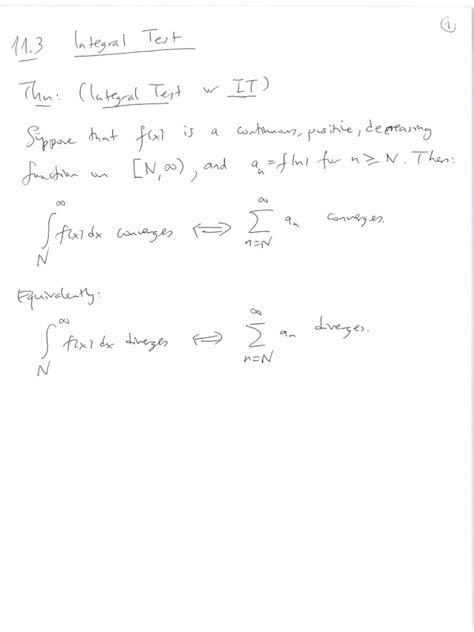 ①
11.3 Integral Test
Thm: (Integral Test or IT)
Suppose that f(x) is a continuous, positive, decreasing
function on [N, ∞), and aₙ = f(n) for n ≥ N. Then:
∫_N^∞ f(x) dx converges ⟺ ∑_{n=N}^∞ aₙ converges.
Equivalently:
∫_N^∞ f(x) dx diverges ⟺ ∑_{n=N}^∞ aₙ diverges.